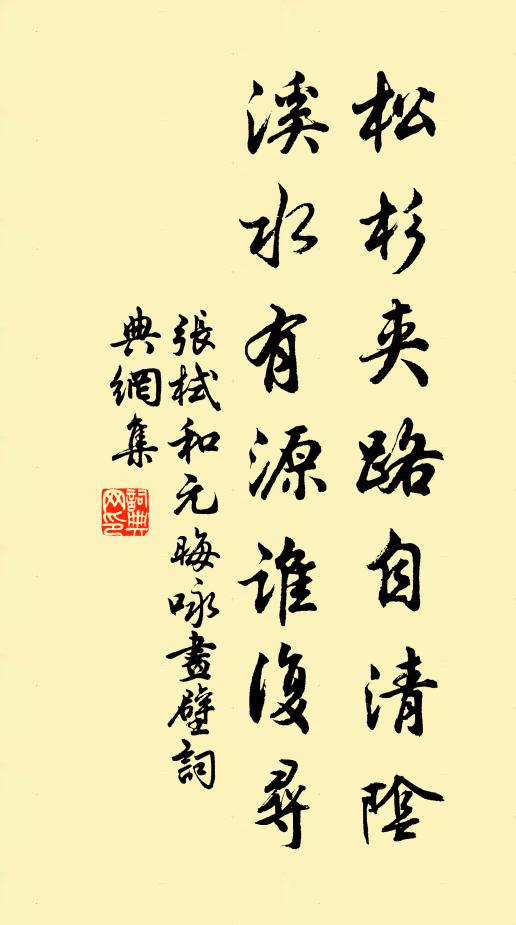 松杉夾路自清陰
溪水有源誰復尋
張栻和元晦咏畫壁詞
典網集
詞典
网印